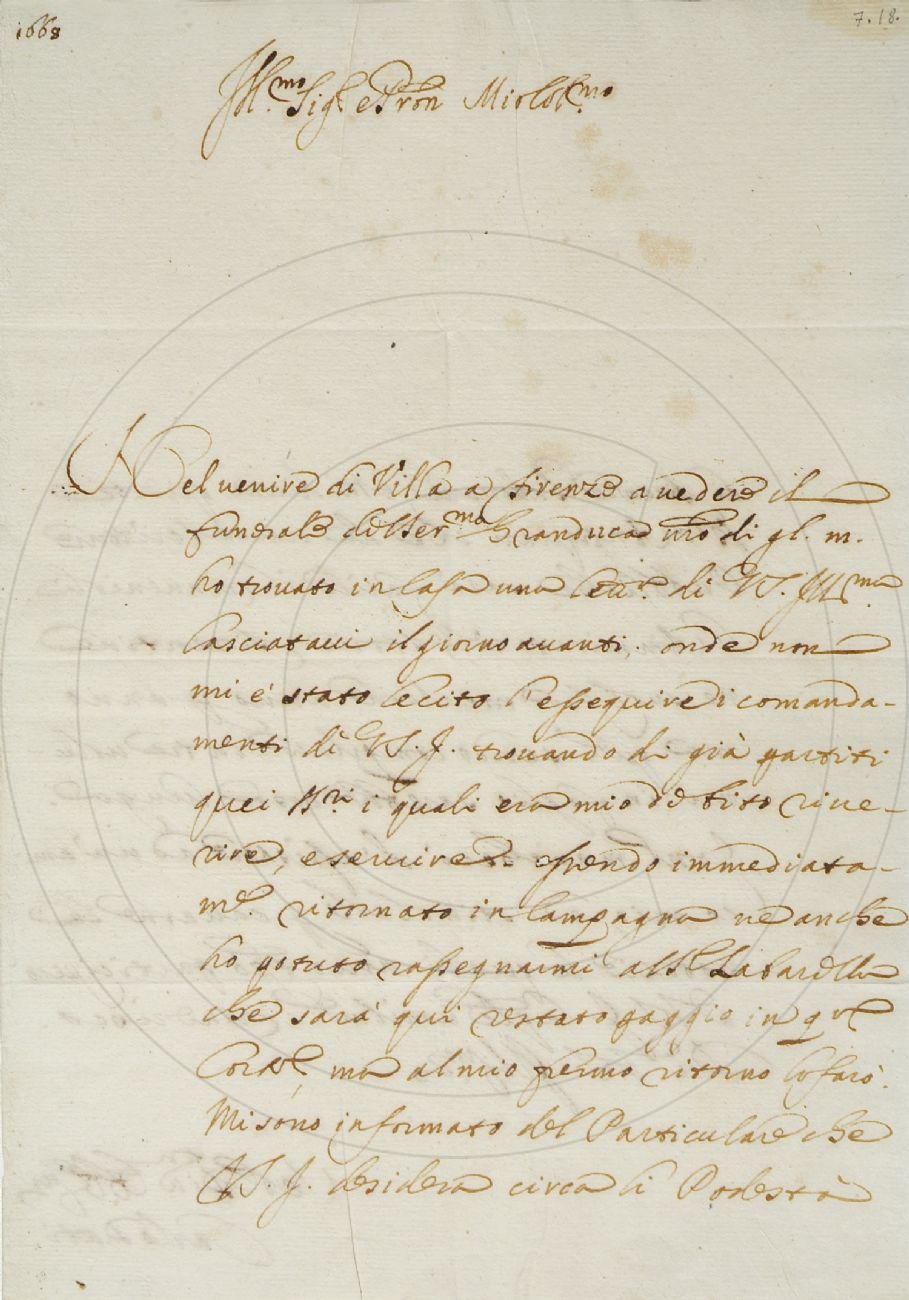 1668
7.18.
Ill.mo Sig.r e Pron Mio Col.mo
Nel venire di Villa a firenze a vedere il
funerale del Ser.mo Granduca nro di gl. m.
ho trovato in Casa una lett.ra di VS. Ill.ma
lasciatavi il giorno avanti, onde non
mi è stato lecito l'esseguire i comanda-
menti di VS. I. trovando di già partiti
quei SS.ri i quali era mio debito rive-
rire, e servire essendo immediata-
m.e ritornato in Campagna ne anche
ho potuto rassegnarmi al S.r Labarella
che sarà qui restato paggio in q.ta
Corte, ma al mio fermo ritorno lo farò.
Mi sono informato del Particulare che
VS. I. desidera circa li Podestà